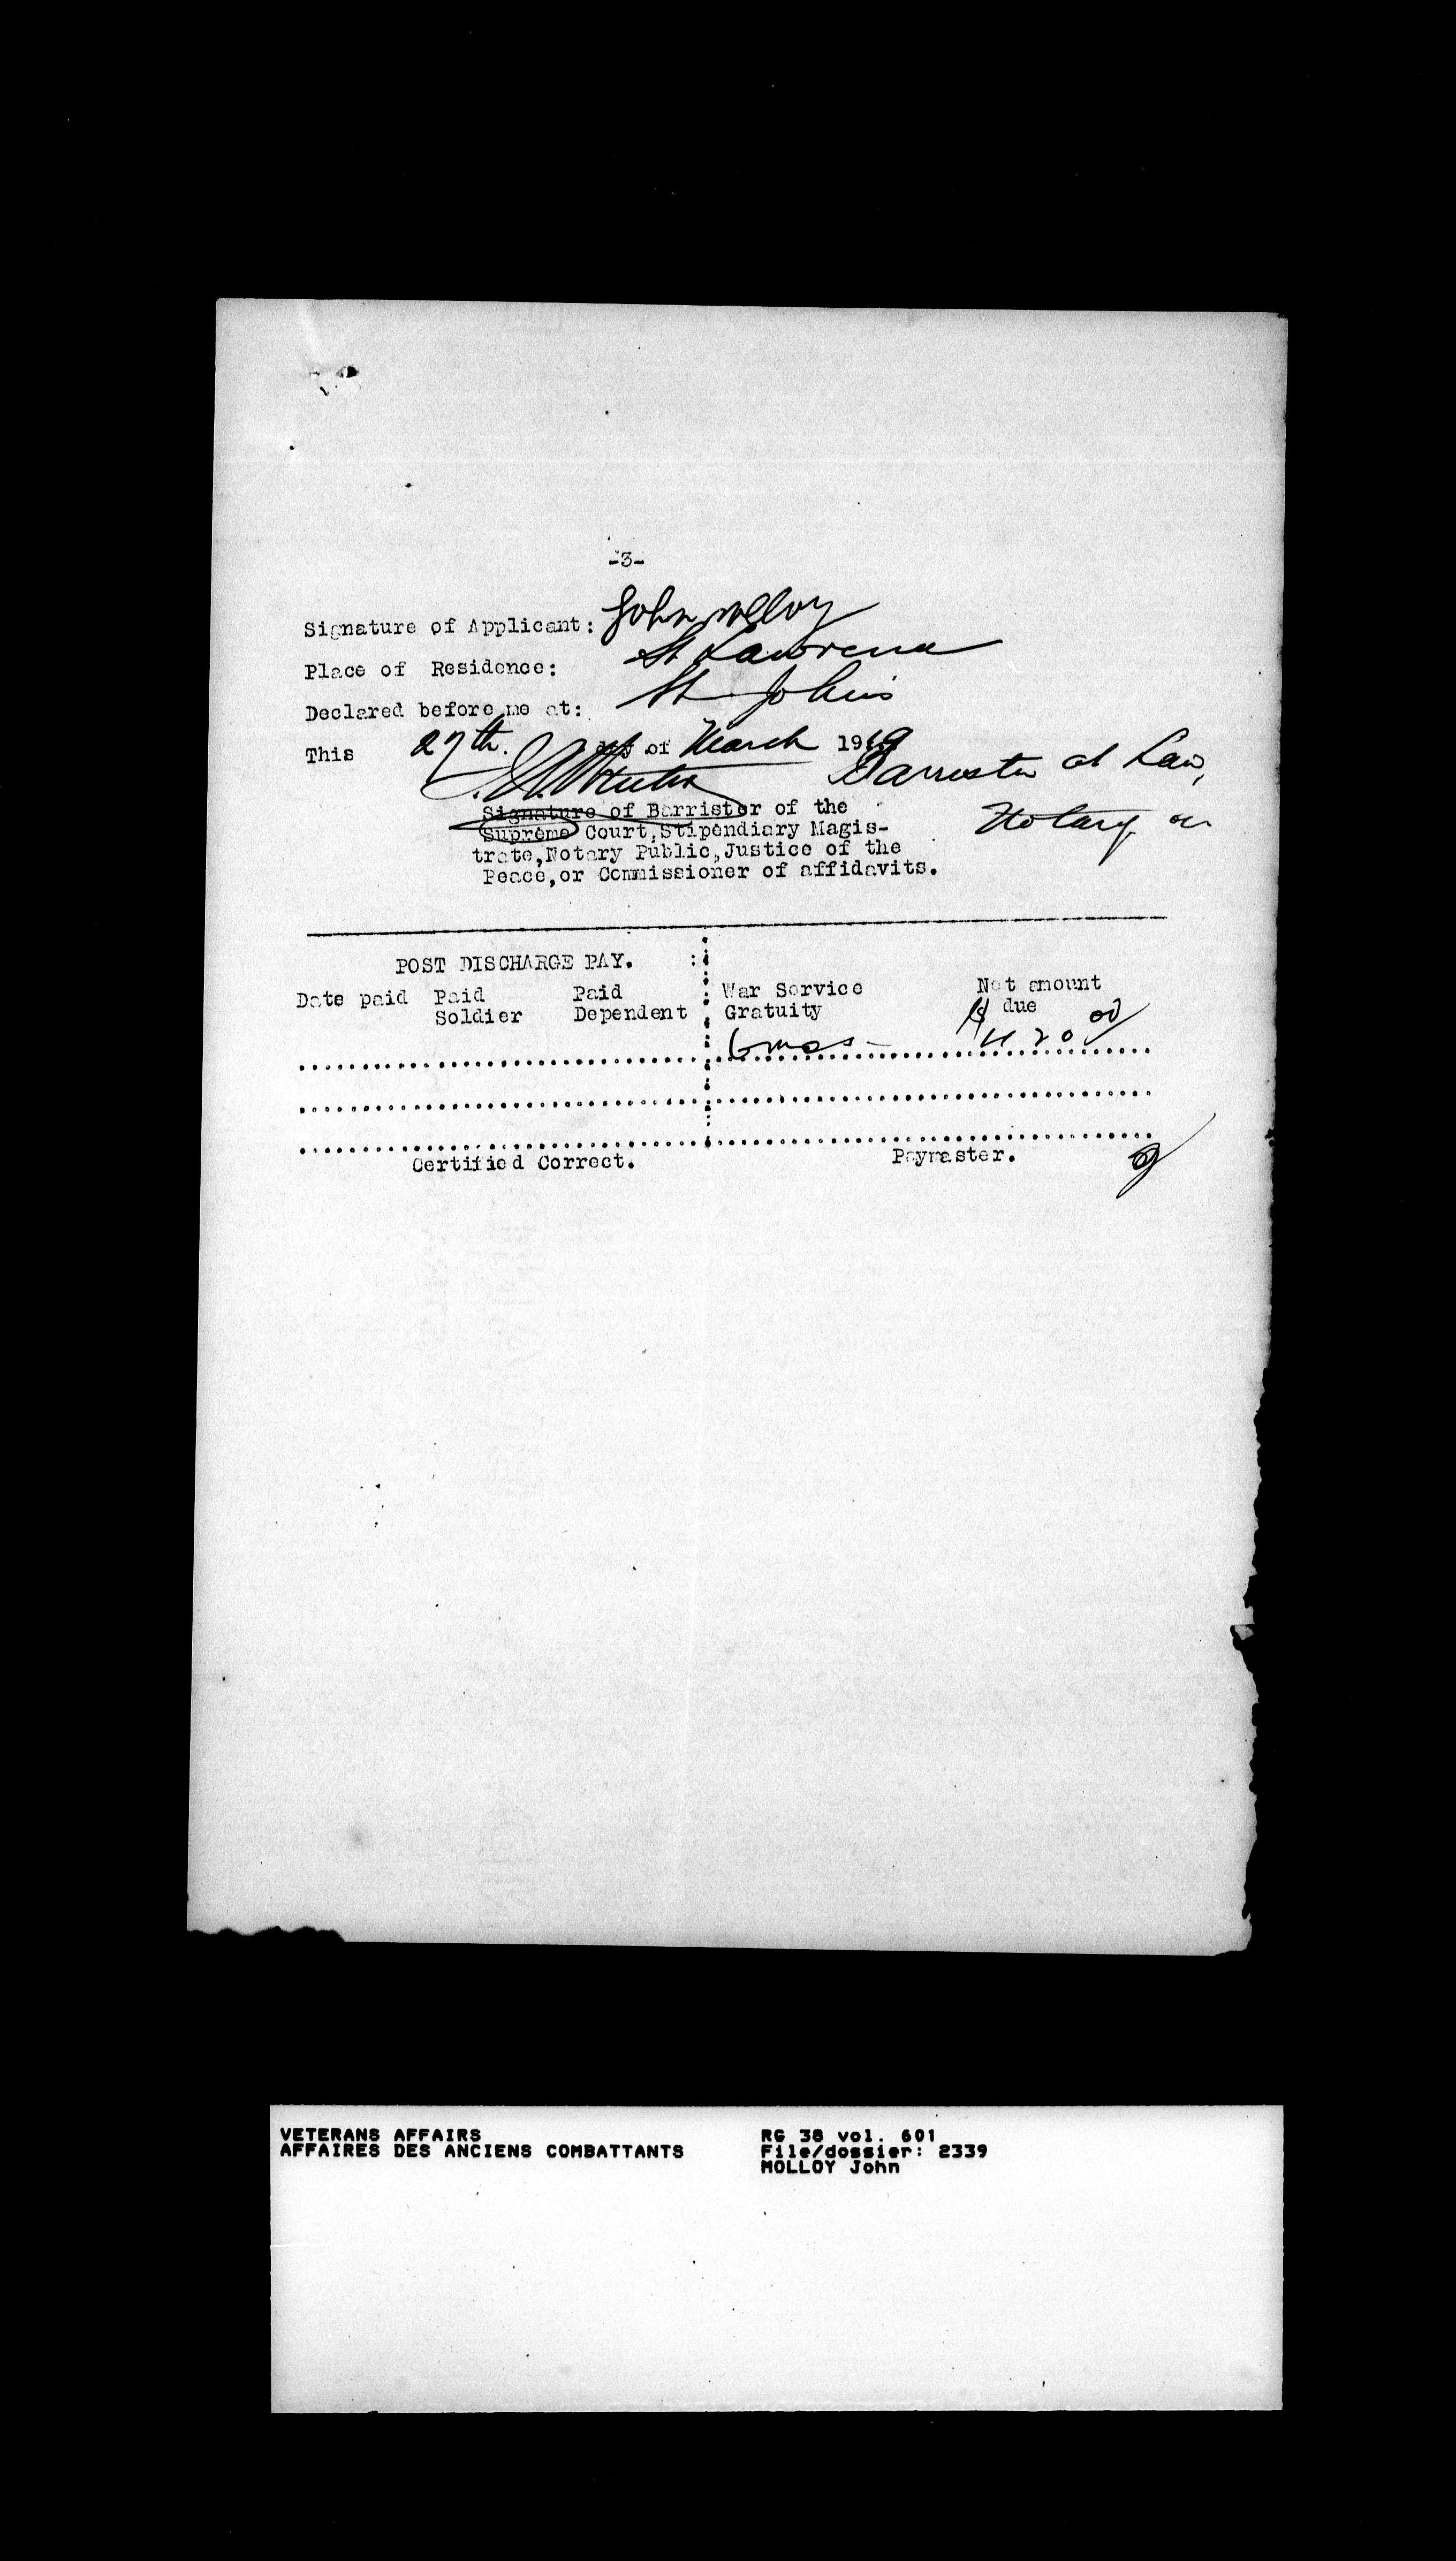 -3-
Signature of Applicant: John Molloy
Place of Residence: St Lawrence
Declared before me at: St John's
This 27th. day of March 1919
Barrister at Law,
Notary
Signature of Barrister of the
Supreme Court, Stipendiary Magis-
trate, Notary Public, Justice of the
Peace, or Commissioner of affidavits.
POST DISCHARGE PAY. :
Date paid Paid Paid War Service Net amount
Soldier Dependent Gratuity $ due
6 mos - 420 00
Certified Correct. Paymaster.
VETERANS AFFAIRS RG 38 vol. 601
AFFAIRES DES ANCIENS COMBATTANTS File/dossier: 2339
MOLLOY John